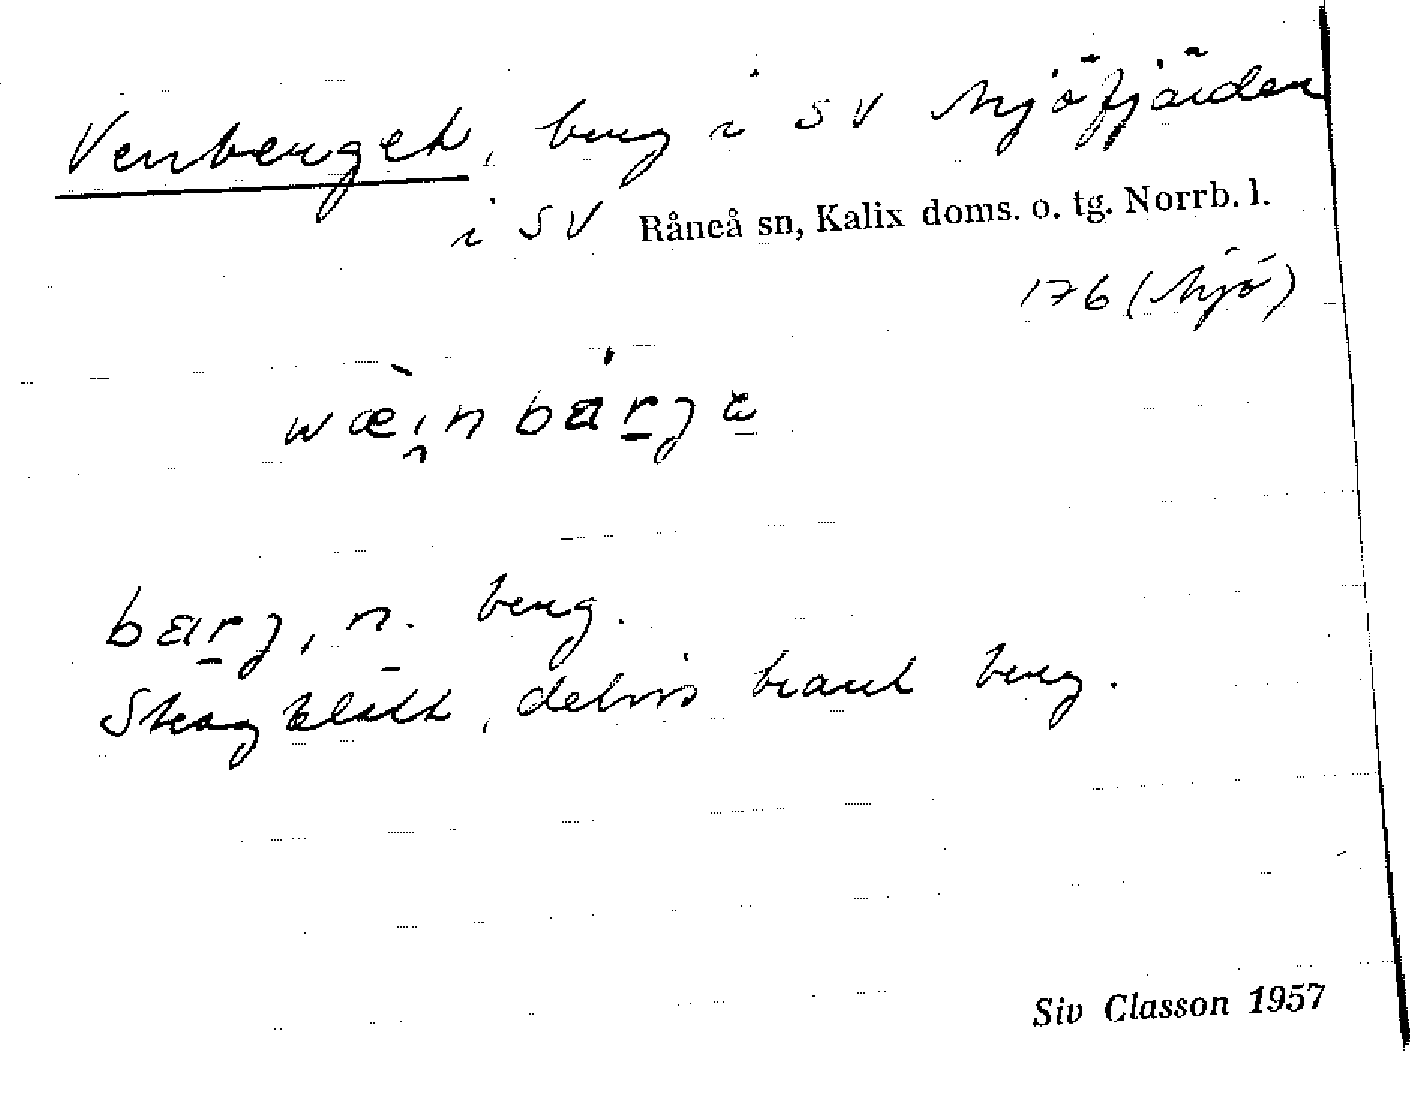 Venberget, berg i SV Mjöfjärden
i SV Råneå sn, Kalix doms. o. tg. Norrb. l.
176 (Mjö)
barj, n. berg.
Skogklätt, delvis brant berg.
Siv Classon 1957